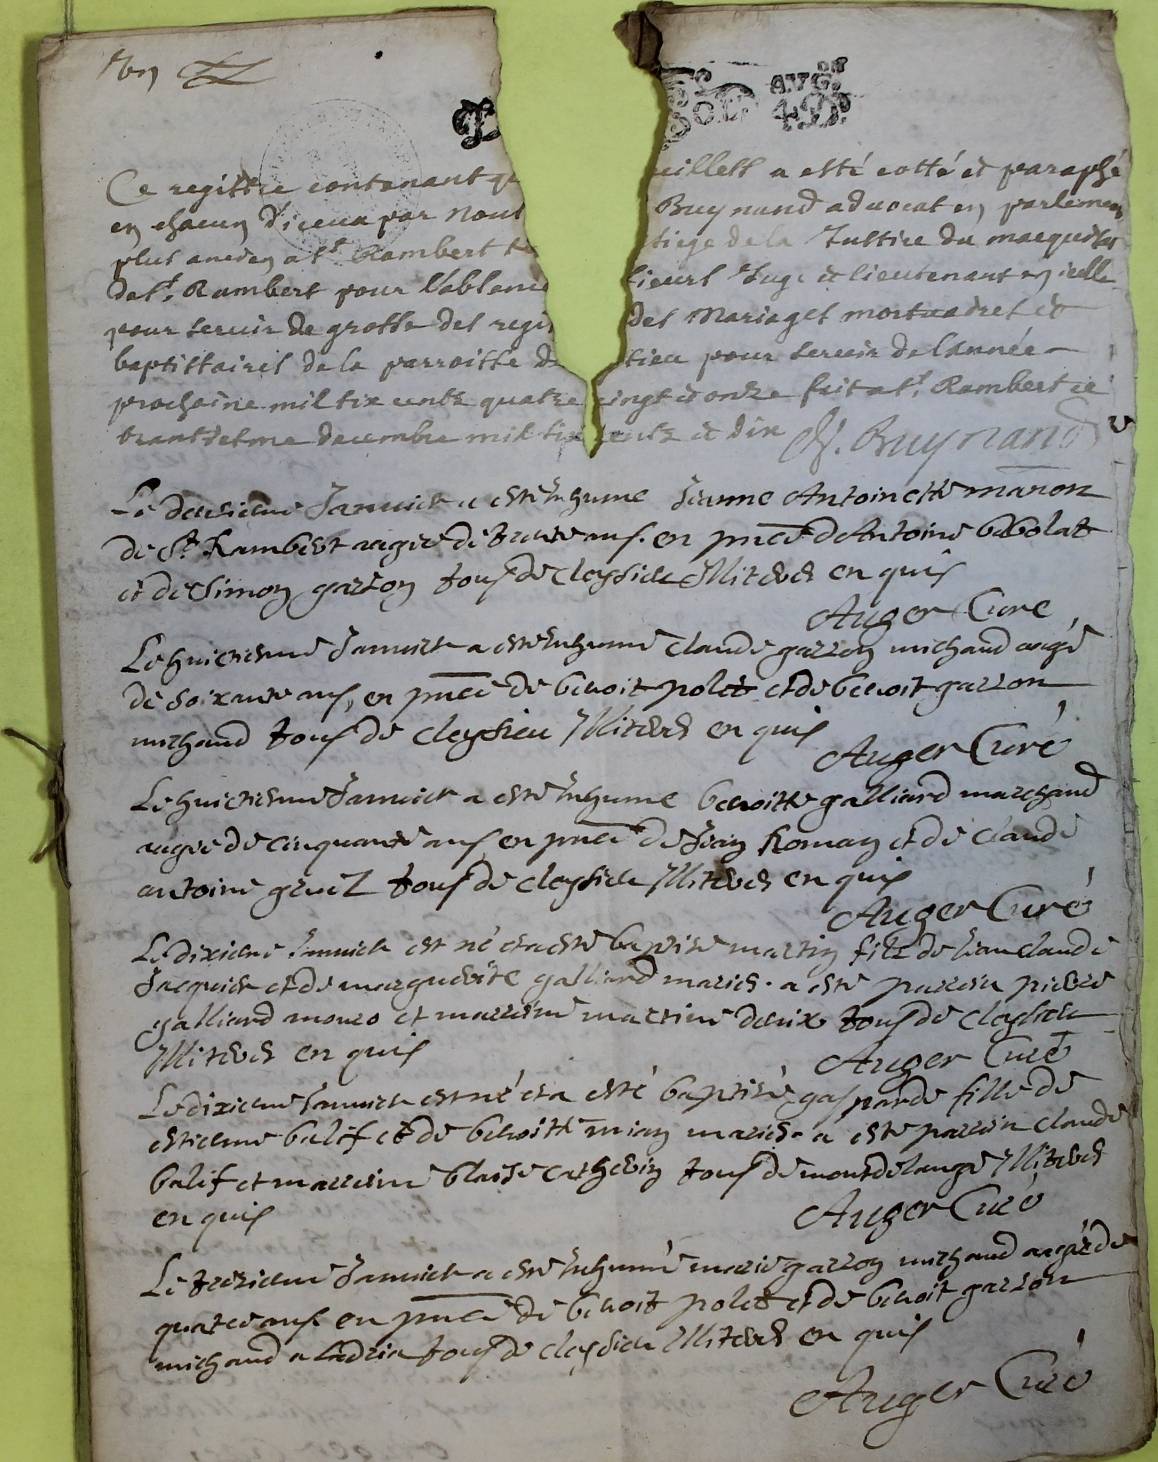 AVG.
SOL 4 D.
Ce registre contenant qu euilletz a esté cotté et paraphé
en chacun d'iceux par Nous Buynand advocat en parlement
plus ancien a St. Rambert siege de la Justice du marquisat
de St. Rambert pour l'absence sieurs Juge et lieutenant en icelle
pour servir de grosse des regis des Mariages mortuaires et
baptistaires de la parroisse de sieu pour servir de l'année
prochaine mil six centz quatre vingt et onze fait a St. Rambert ce
trantiesme decembre mil six centz et dix N. Buynand
Le deusieme Januier a esté Inhume Jeanne Antoinette manon
de St. Rambert aagee de trente ans. en pnce d'Antoine bobolat
et de Simon garson tous de Cleysieu Illiteres en quis
Auger Curé
Le huictieme Januier a esté Inhumé Claude garson michaud aagé
de soixante ans, en pnce de benoit polet et de benoit garson
michaud tous de Cleysieu Illiteres en quis
Auger Curé
Le huictieme Januier a esté Inhume benoitte galliard marchand
aagee de cinquante ans en pnce de Jean Roman et de Claude
antoine tous de Cleysieu Illiteres en quis
Auger Curé
Le dixieme Januier est né et a esté baptisé martin filz de Jean Claude
Jacquier et de marguerite galliard maries. a esté parrein pierre
galliard et marreine martine tous de Cleysieu
Illiteres en quis
Auger Curé
Le dixieme Januier est né et a esté baptisé gasparde fille de
estienne balif et de benoitte mian maries. a esté parrein Claude
balif et marreine blaise Catherin tous de montdelange Illiteres
en quis
Auger Curé
Le trezieme Januier a esté Inhumé marie garson michaud aagée de
quatre ans en pnce de benoit polet et de benoit garson
michaud tous de Cleysieu Illiteres en quis
Auger Curé